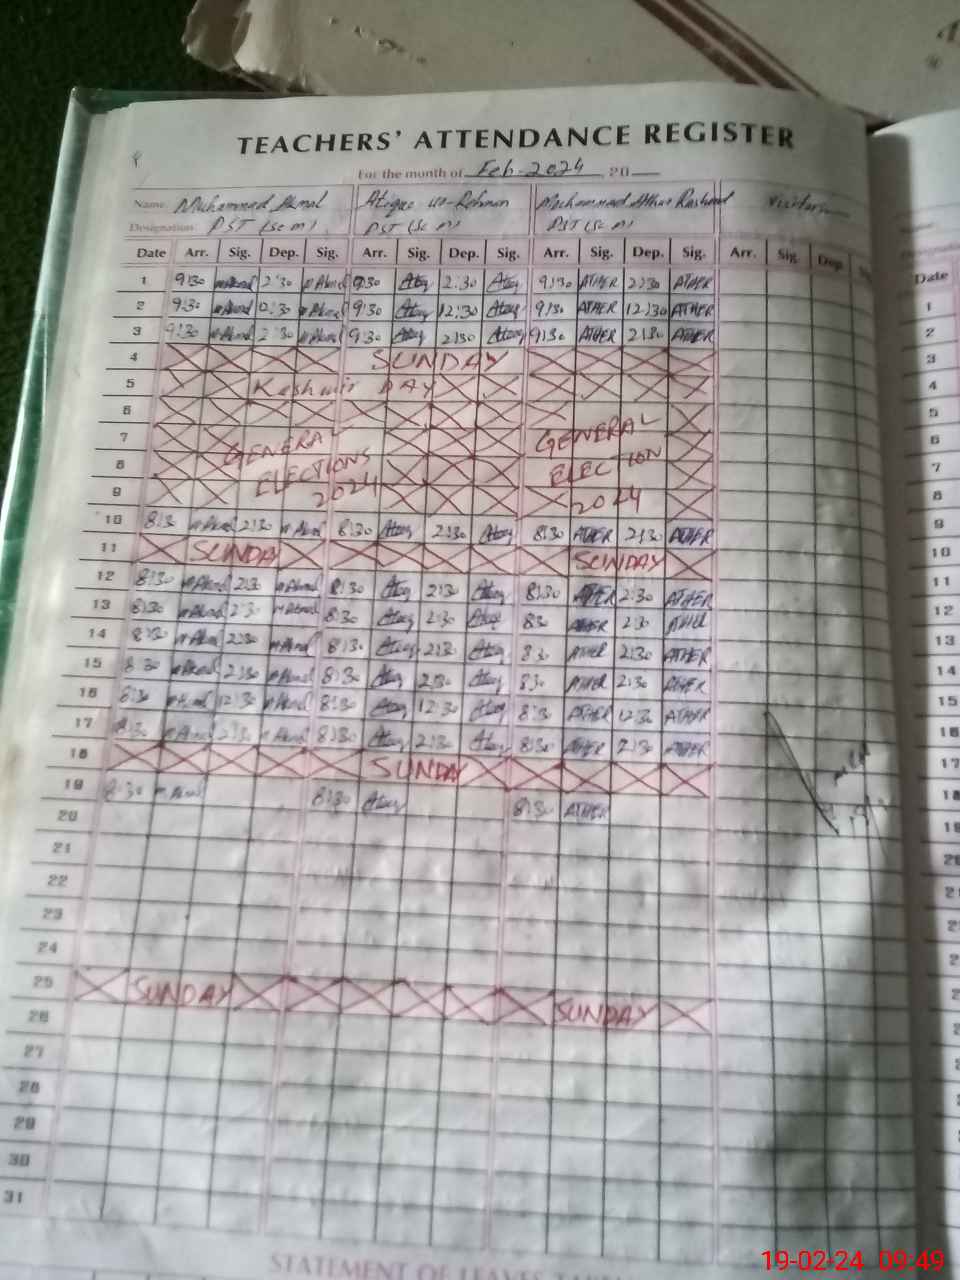 TEACHERS' ATTENDANCE REGISTER
For the month of Feb-2024, 20
Name: Muhammad Akmal Atique ur-Rehman Muhammad Athar Rasheed
Designation: PST (Sc m) PST (Sc m) PST (Sc m)
Date Arr. Sig. Dep. Sig. Arr. Sig. Dep. Sig. Arr. Sig. Dep. Sig. Arr. Sig. Dep.
1 9:30 m Akmal 2:30 m Akmal 9:30 Atiq 2:30 Atiq 9:30 ATHER 2:30 ATHER
2 9:30 m Akmal 12:30 m Akmal 9:30 Atiq 12:30 Atiq 9:30 ATHER 12:30 ATHER
3 9:30 m Akmal 2:30 m Akmal 9:30 Atiq 2:30 Atiq 9:30 ATHER 2:30 ATHER
4 SUNDAY
5 Kashmir DAY
6
7 GENERAL GENERAL
8 ELECTIONS ELECTION
9 2024 2024
10 8:30 m Akmal 2:30 m Akmal 8:30 Atiq 2:30 Atiq 8:30 ATHER 2:30 ATHER
11 SUNDAY SUNDAY
12 8:30 m Akmal 2:30 m Akmal 8:30 Atiq 2:30 Atiq 8:30 ATHER 2:30 ATHER
13 8:30 m Akmal 2:30 m Akmal 8:30 Atiq 2:30 Atiq 8:30 ATHER 2:30 ATHER
14 8:30 m Akmal 2:30 m Akmal 8:30 Atiq 2:30 Atiq 8:30 ATHER 2:30 ATHER
15 8:30 m Akmal 2:30 m Akmal 8:30 Atiq 2:30 Atiq 8:30 ATHER 2:30 ATHER
16 8:30 m Akmal 12:30 m Akmal 8:30 Atiq 12:30 Atiq 8:30 ATHER 12:30 ATHER
17 8:30 m Akmal 2:30 m Akmal 8:30 Atiq 2:30 Atiq 8:30 ATHER 2:30 ATHER
18 SUNDAY
19 8:30 m Akmal 8:30 Atiq 8:30 ATHER
20
21
22
23
24
25 SUNDAY SUNDAY
26
27
28
29
30
31
STATEMENT OF LEAVES
Date
1
2
3
4
5
6
7
8
9
10
11
12
13
14
15
16
17
18
19
19-02-24 09:49